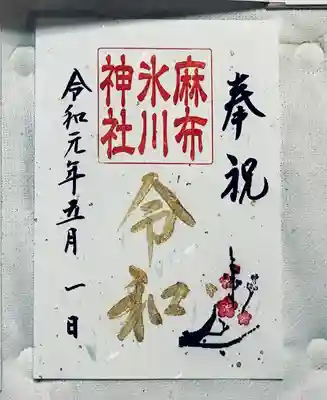 奉祝
麻布
氷川
神社
令和
令和元年五月一日